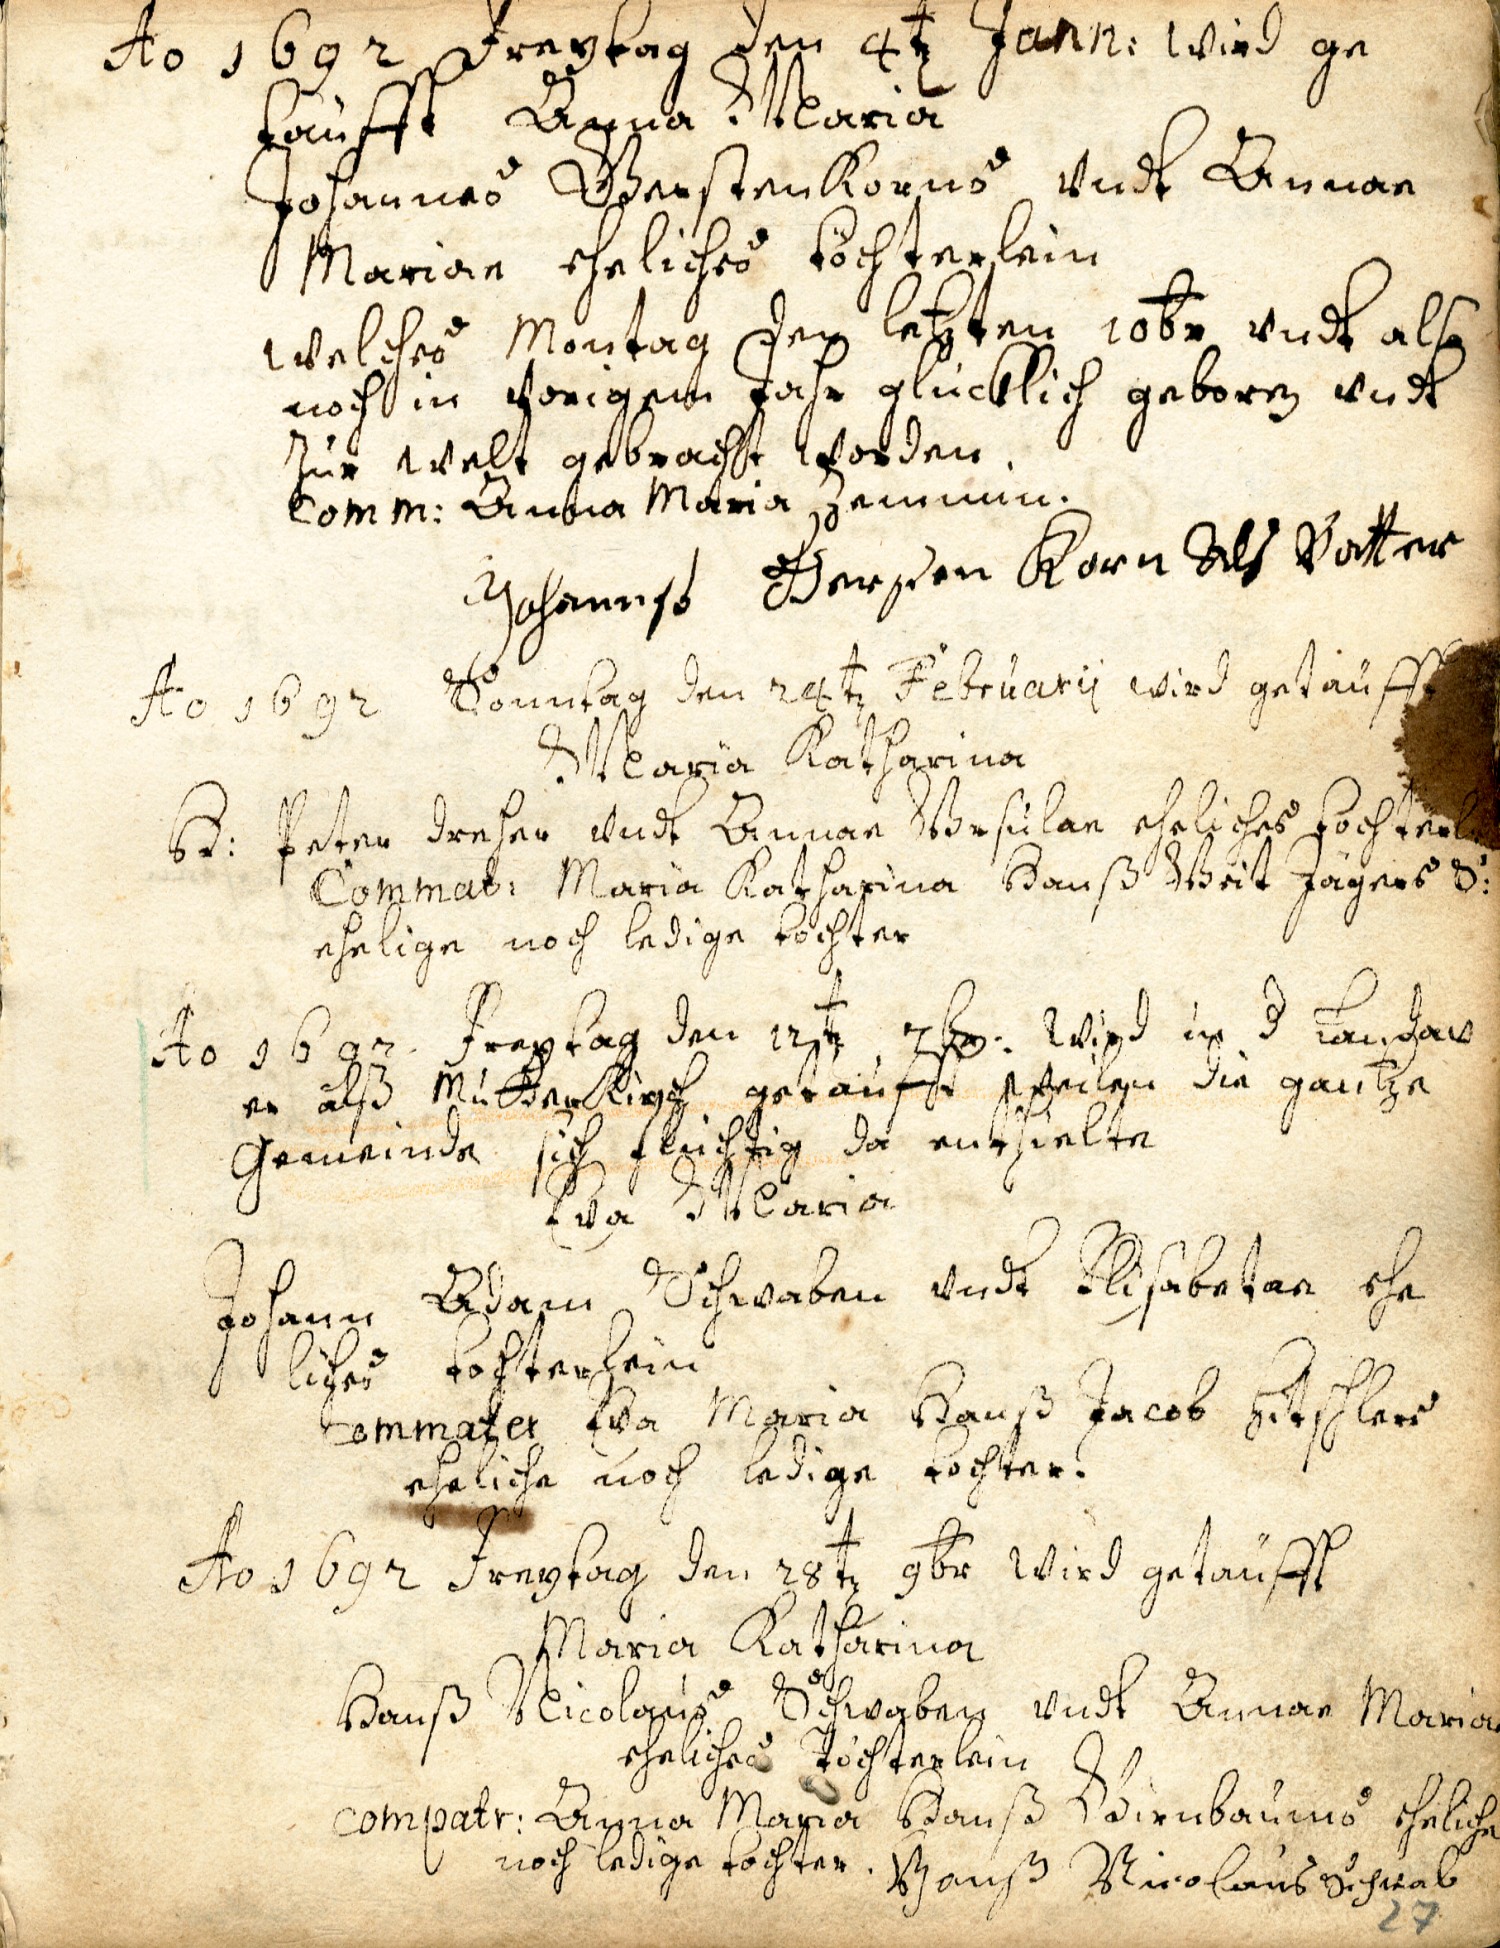 Ao 1692 Freytag den 4tz Jann: wird ge
taüfft Anna Maria
Johannes Gerstenkorns vndt Annae
Mariae eheliches töchterlein
welches Montag den letzten 10br vndt also
noch in vorigem Jahr glücklich geboren vndt
Zur welt gebracht worden.
Comm: Anna Maria
Johannes Gersten Korn Als Vatter
Ao 1692 Sonntag den 24tz Februarij wird getaüfft
Maria Katharina
H: Peter dreher vndt Annae Vrsulae eheliches töchterle
Commat: Maria Katharina Hanß Veit Jägers S:
ehelige noch ledige tochter
Ao 1692 Freytag den 12tz 7br: wird in d Landaw
er alß Mutterkirch getaufft weilen die gantze
Gemeinde sich flüchtig da enthielte
Eva Maria
Johann Adam Schwaben vndt Elisabetae ehe
liches tochterlein
Commater Eva Maria Hanß Jacob Hitschlers
eheliche noch ledige tochter.
Ao 1692 Freytag den 28tz 9br wird getaüfft
Maria Katharina
Hanß Nicolaus Schwaben vndt Annae Mariae
eheliches Töchterlein
compatr: Anna Maria Hanß Birnbaums eheliche
noch ledige tochter. Hanß Nicolaus Schwab
27